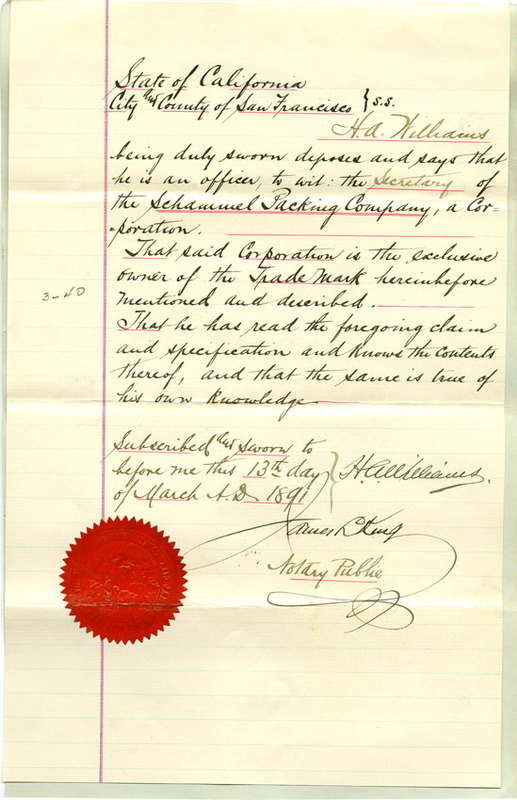 State of California
City and County of San Francisco } S.S.
H.A. Williams
being duly sworn deposes and says that
he is an officer, to wit: the Secretary of
the Schammel Packing Company, a Cor=
poration.
That said Corporation is the exclusive
owner of the Trade Mark hereinbefore
mentioned and described.
3-40
That he has read the foregoing claim
and specification and knows the contents
thereof, and that the same is true of
his own knowledge
Subscribed and sworn to
before me this 13th day } H.A. Williams.
of March A.D. 1891
James L. King
Notary Public